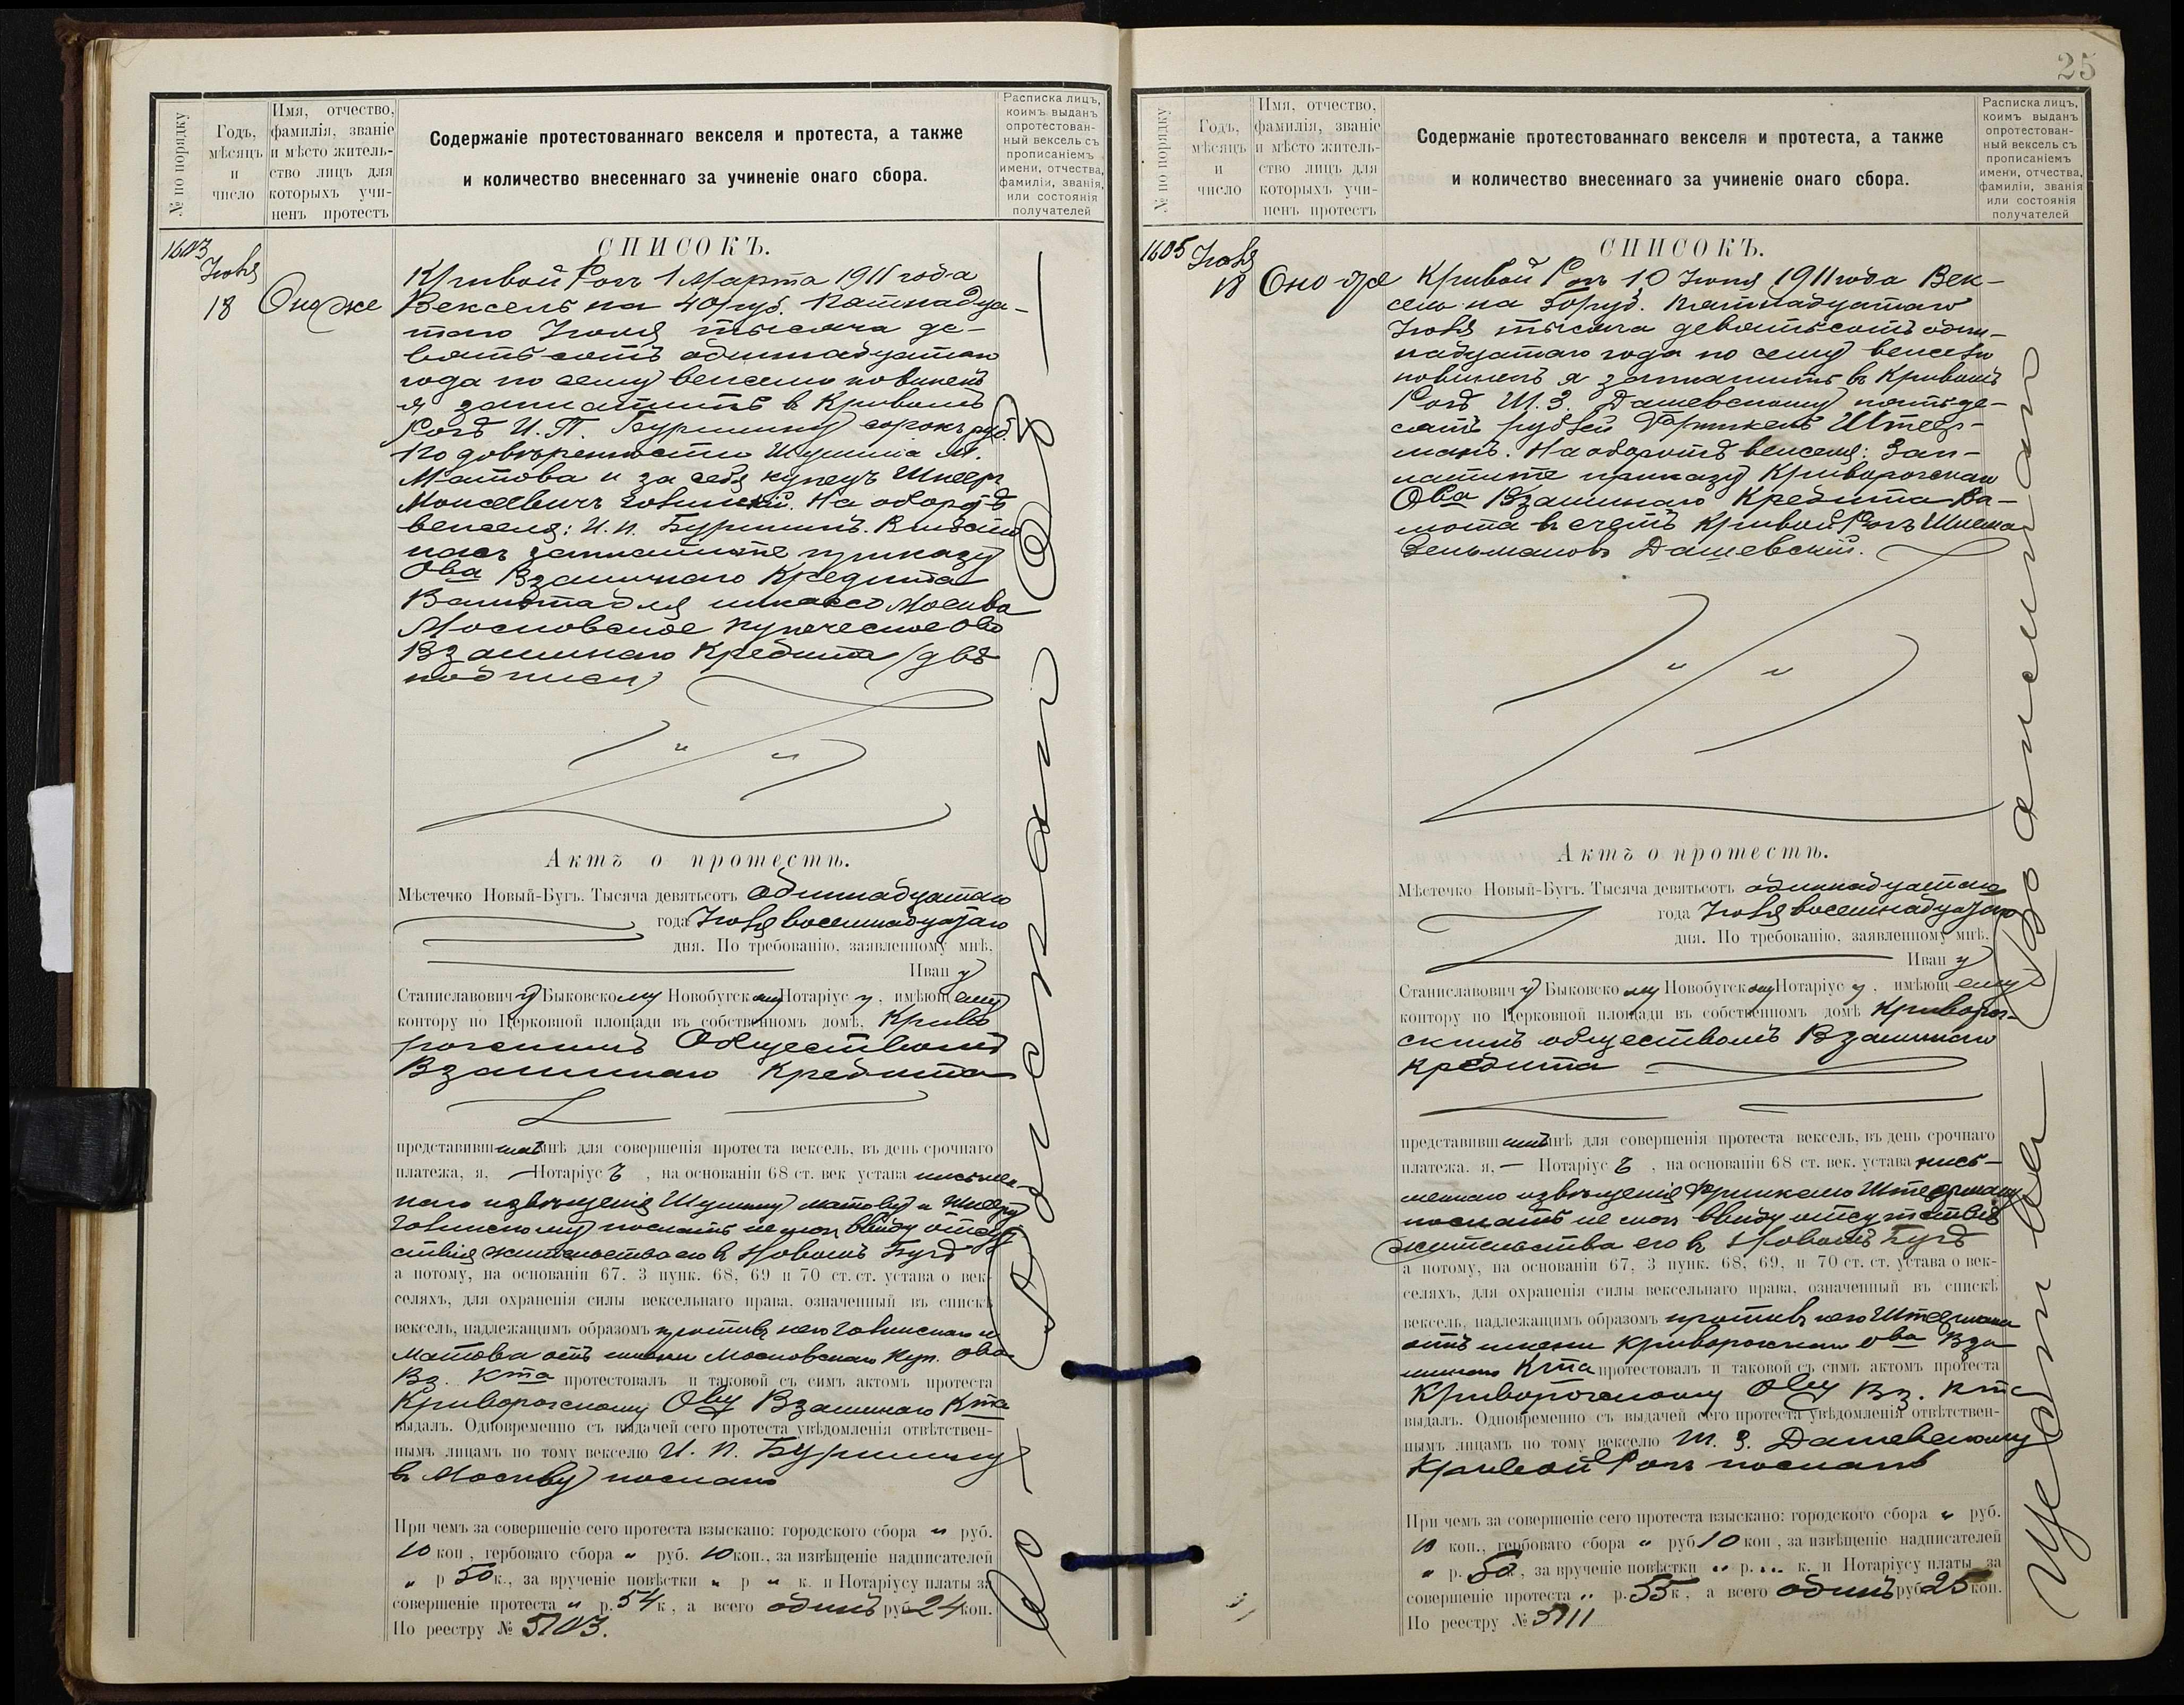 № по порядку
Годъ, мѣсяцъ и число
Имя, отчество, фамилія, званіе и мѣсто жительство лицъ для которыхъ учиненъ протестъ
Содержаніе протестованнаго векселя и протеста, а также
и количество внесеннаго за учиненіе онаго сбора.
Расписка лицъ, коимъ выданъ опротестованный вексель съ прописаніемъ имени, отчества, фамиліи, званія, или состоянія получателей
1603
Іюля
18
Оно же
СПИСОКЪ.
Кривой Рогъ 1 Марта 1911 года
Вексель на 40 руб. Пятнадца-
таго Іюля тысяча де-
вятьсотъ одиннадцатаго
года по сему векселю повиненъ
я заплатить в Кривомъ
Рогѣ И. П. Бурышину сорокъ руб.
По довѣренности
Матова и за себя купецъ
Моисеевичъ На оборотѣ
векселя: И. П. Бурышинъ. Вмѣсто
насъ заплатите приказу
Ова Взаимнаго Кредита
Валюта для инкассо Москва
Московское Купеческое Ово
Взаимнаго Кредита (двѣ
подписи)
Актъ о протестѣ.
Мѣстечко Новый-Бугъ. Тысяча девятьсотъ одиннадцатаго
года Іюля восемнадцатаго
дня. По требованію, заявленному мнѣ,
Иван у
Станиславович у Быковскому Новобугскому Нотаріус у, имѣющ ему
контору по Церковной площади въ собственномъ домѣ, Криво
рогскимъ Обществомъ
Взаимнаго Кредита
представившимъ мнѣ для совершенія протеста вексель, въ день срочнаго
платежа, я, Нотаріус ъ, на основаніи 68 ст. век устава письмен-
наго извѣщенія Матову и
послать не могъ ввиду отсут
ствія жительства его в Новомъ Бугѣ
а потому, на основаніи 67, 3 пунк. 68, 69 и 70 ст. ст. устава о век-
селяхъ, для охраненія силы вексельнаго права, означенный въ спискѣ
вексель, надлежащимъ образомъ противъ него и
Матова отъ имени Московскаго Куп. Ова
Вз. Кта протестовалъ и таковой съ симъ актомъ протеста
Криворогскому Ову Взаимнаго Кта
выдалъ. Одновременно съ выдачей сего протеста увѣдомленія отвѣтствен-
нымъ лицамъ по тому векселю И. П. Бурышину
в Москву послано
При чемъ за совершеніе сего протеста взыскано: городского сбора " руб.
10 коп, гербоваго сбора " руб. 10 коп., за извѣщеніе надписателей
" р 50 к., за врученіе повѣстки " р " к. и Нотаріусу платы за
совершеніе протеста " р. 54 к, а всего одинъ руб 24 коп.
По реестру № 5703.
25
№ по порядку
Годъ, мѣсяцъ и число
Имя, отчество, фамилія, званіе и мѣсто жительство лицъ для которыхъ учиненъ протестъ
Содержаніе протестованнаго векселя и протеста, а также
и количество внесеннаго за учиненіе онаго сбора.
Расписка лицъ, коимъ выданъ опротестованный вексель съ прописаніемъ имени, отчества, фамиліи, званія или состоянія получателей
1605
Іюля
18
Оно же
СПИСОКЪ.
Кривой Рогъ 10 Іюня 1911 года Век-
сель на 50 руб. Пятнадцатаго
Іюля тысяча девятьсотъ один-
надцатаго года по сему векселю
повиненъ я заплатить въ Кривомъ
Рогѣ Ш. З. Дашевскому пятьде-
сятъ рублей Штер-
манъ. На оборотѣ векселя: Зап-
латите приказу Криворогскаго
Ова Взаимнаго Кредита Ва-
люта в счетъ Кривой Рогъ
Зельмановъ Дашевскій.
Актъ о протестѣ.
Мѣстечко Новый-Бугъ. Тысяча девятьсотъ одиннадцатаго
года Іюля восемнадцатаго
дня. По требованію, заявленному мнѣ,
Иван у
Станиславович у Быковскому Новобугскому Нотаріус у, имѣющ ему
контору по Церковной площади въ собственномъ домѣ Криворог-
скимъ обществомъ Взаимнаго
Кредита
представившимъ мнѣ для совершенія протеста вексель, въ день срочнаго
платежа. я, — Нотаріус ъ, на основаніи 68 ст. век. устава пись-
меннаго извѣщенія Штерману
послать не могъ ввиду отсутствія
жительства его в Новомъ Бугѣ
а потому, на основаніи 67, 3 пунк. 68, 69, и 70 ст. ст. устава о век-
селяхъ, для охраненія силы вексельнаго права, означенный въ спискѣ
вексель, надлежащимъ образомъ противъ него Штермана
отъ имени Криворогскаго Ова Вза-
имнаго Кта протестовалъ и таковой съ симъ актомъ протеста
Криворогскому Ову Вз. Кта
выдалъ. Одновременно съ выдачей сего протеста увѣдомленія отвѣтствен-
нымъ лицамъ по тому векселю Ш. З. Дашевскому
Кривой Рогъ послано
При чемъ за совершеніе сего протеста взыскано: городского сбора " руб.
10 коп., гербоваго сбора " руб 10 коп, за извѣщеніе надписателей
" р. 50, за врученіе повѣстки " р. " к. и Нотаріусу платы за
совершеніе протеста " р. 55 к, а всего одинъ руб 25 коп.
По реестру № 5711